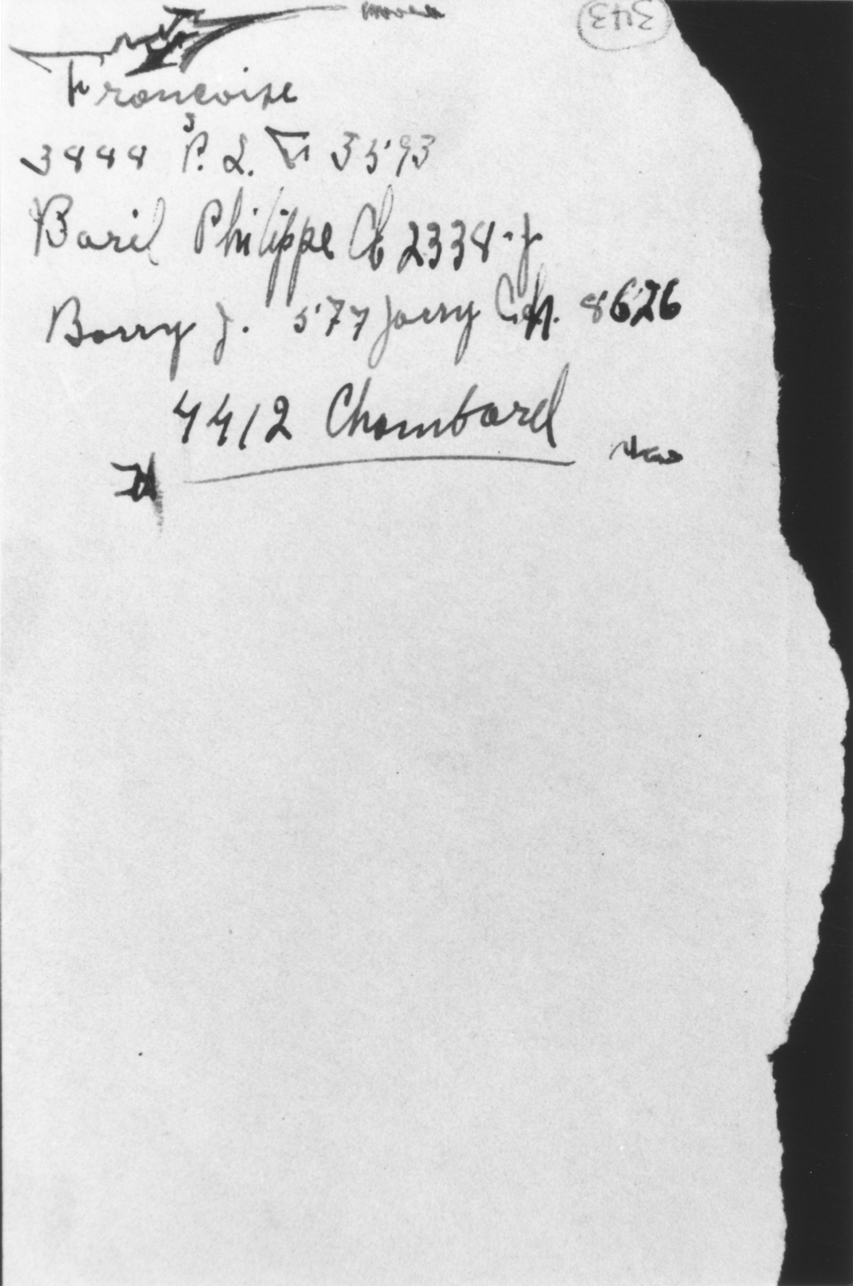 343
Francoise
3444 P. L. Fr 3593
Baril Philippe Ch 2334-J
Barry J. 577 Jarry Ch. 8626
4412 Chambord